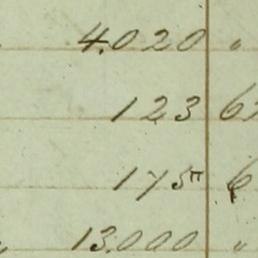 4.020 "
123 6
175 6
13.000 "